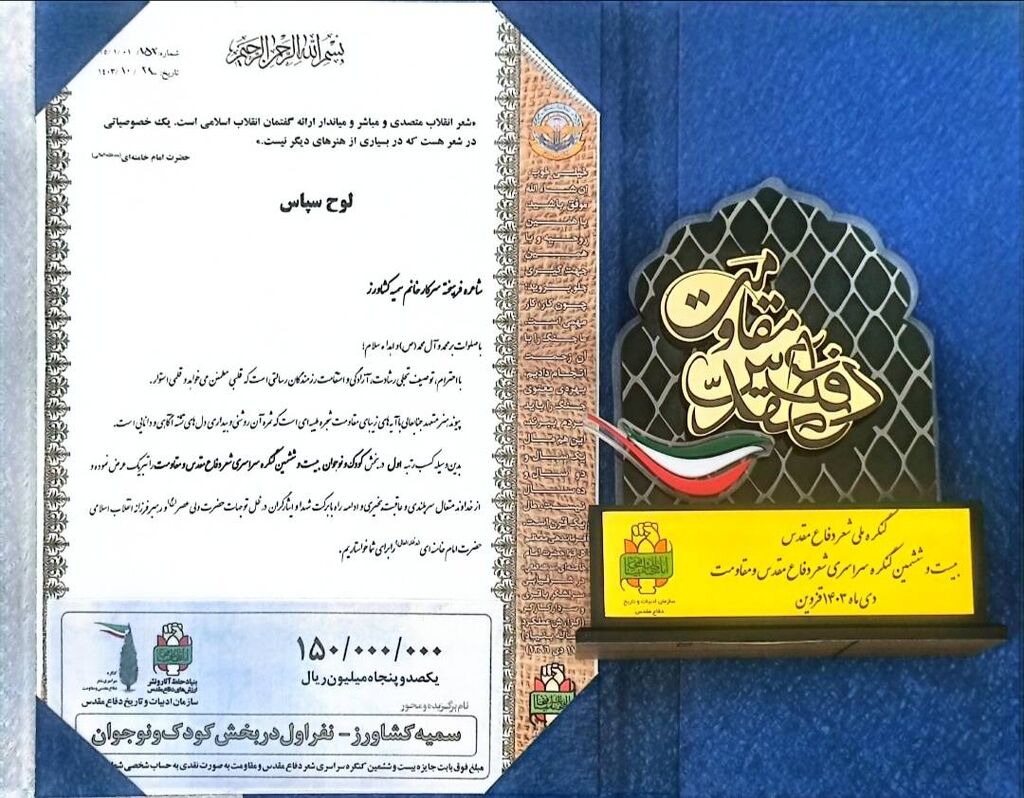 بسم الله الرحمن الرحیم
شماره: ۱۵۲/
تاریخ: ۱۴۰۳/۱۰/۲۹
«شعر انقلاب متصدی و مباشر و میاندار ارائه گفتمان انقلاب اسلامی است. یک خصوصیاتی
در شعر هست که در بسیاری از هنرهای دیگر نیست.»
حضرت امام خامنه‌ای (مدظله‌العالی)
لوح سپاس
شاعره فرهیخته سرکار خانم سمیه کشاورز
با صلوات بر محمد و آل محمد(ص) و اهداء سلام؛
با احترام، توصیف تجلی رشادت، آزادگی و استقامت رزمندگان رسالتی است که قلبی مطمئن می‌خواهد و قلمی استوار.
پیوند هنر متعهد جنابعالی با آیه‌های زیبای مقاومت شجره طیبه‌ای است که ثمره آن روشنی و بیداری دل‌های تشنه آگاهی و دانایی است.
بدین وسیله کسب رتبه اول در بخش کودک و نوجوان بیست و ششمین کنگره سراسری شعر دفاع مقدس و مقاومت را تبریک عرض نموده و
از خداوند متعال سربلندی و عاقبت بخیری و ادامه راه بابرکت شهدا و ایثارگران در ظل توجهات حضرت ولی عصر(عج) و رهبر فرزانه انقلاب اسلامی
حضرت امام خامنه ای (مدظله العالی) را برای شما خواستاریم.
خیلی خوب،
ان شاء الله
موفق باشید
با همین
روحیه و با
همین
جهت‌گیری
جلو بروید؛
چون کار، کار
مهمی است.
ما جنگ را با
آن زحمت
انجام دادیم
بهره‌ی معنوی
جنگ را باید
مردم ببرند
۱۵۰/۰۰۰/۰۰۰
یکصد و پنجاه میلیون ریال
بنیاد حفظ آثار و نشر
ارزش‌های دفاع مقدس
سازمان ادبیات و تاریخ دفاع مقدس
کنگره
سراسری شعر
دفاع مقدس و مقاومت
نام برگزیده و محور
سمیه کشاورز - نفر اول در بخش کودک و نوجوان
مبلغ فوق بابت جایزه بیست و ششمین کنگره سراسری شعر دفاع مقدس و مقاومت به صورت نقدی به حساب شخصی
دفاع مقدس
مقاومت
کنگره ملی شعر دفاع مقدس
بیست و ششمین کنگره سراسری شعر دفاع مقدس و مقاومت
دی ماه ۱۴۰۳ قزوین
سازمان ادبیات و تاریخ
دفاع مقدس